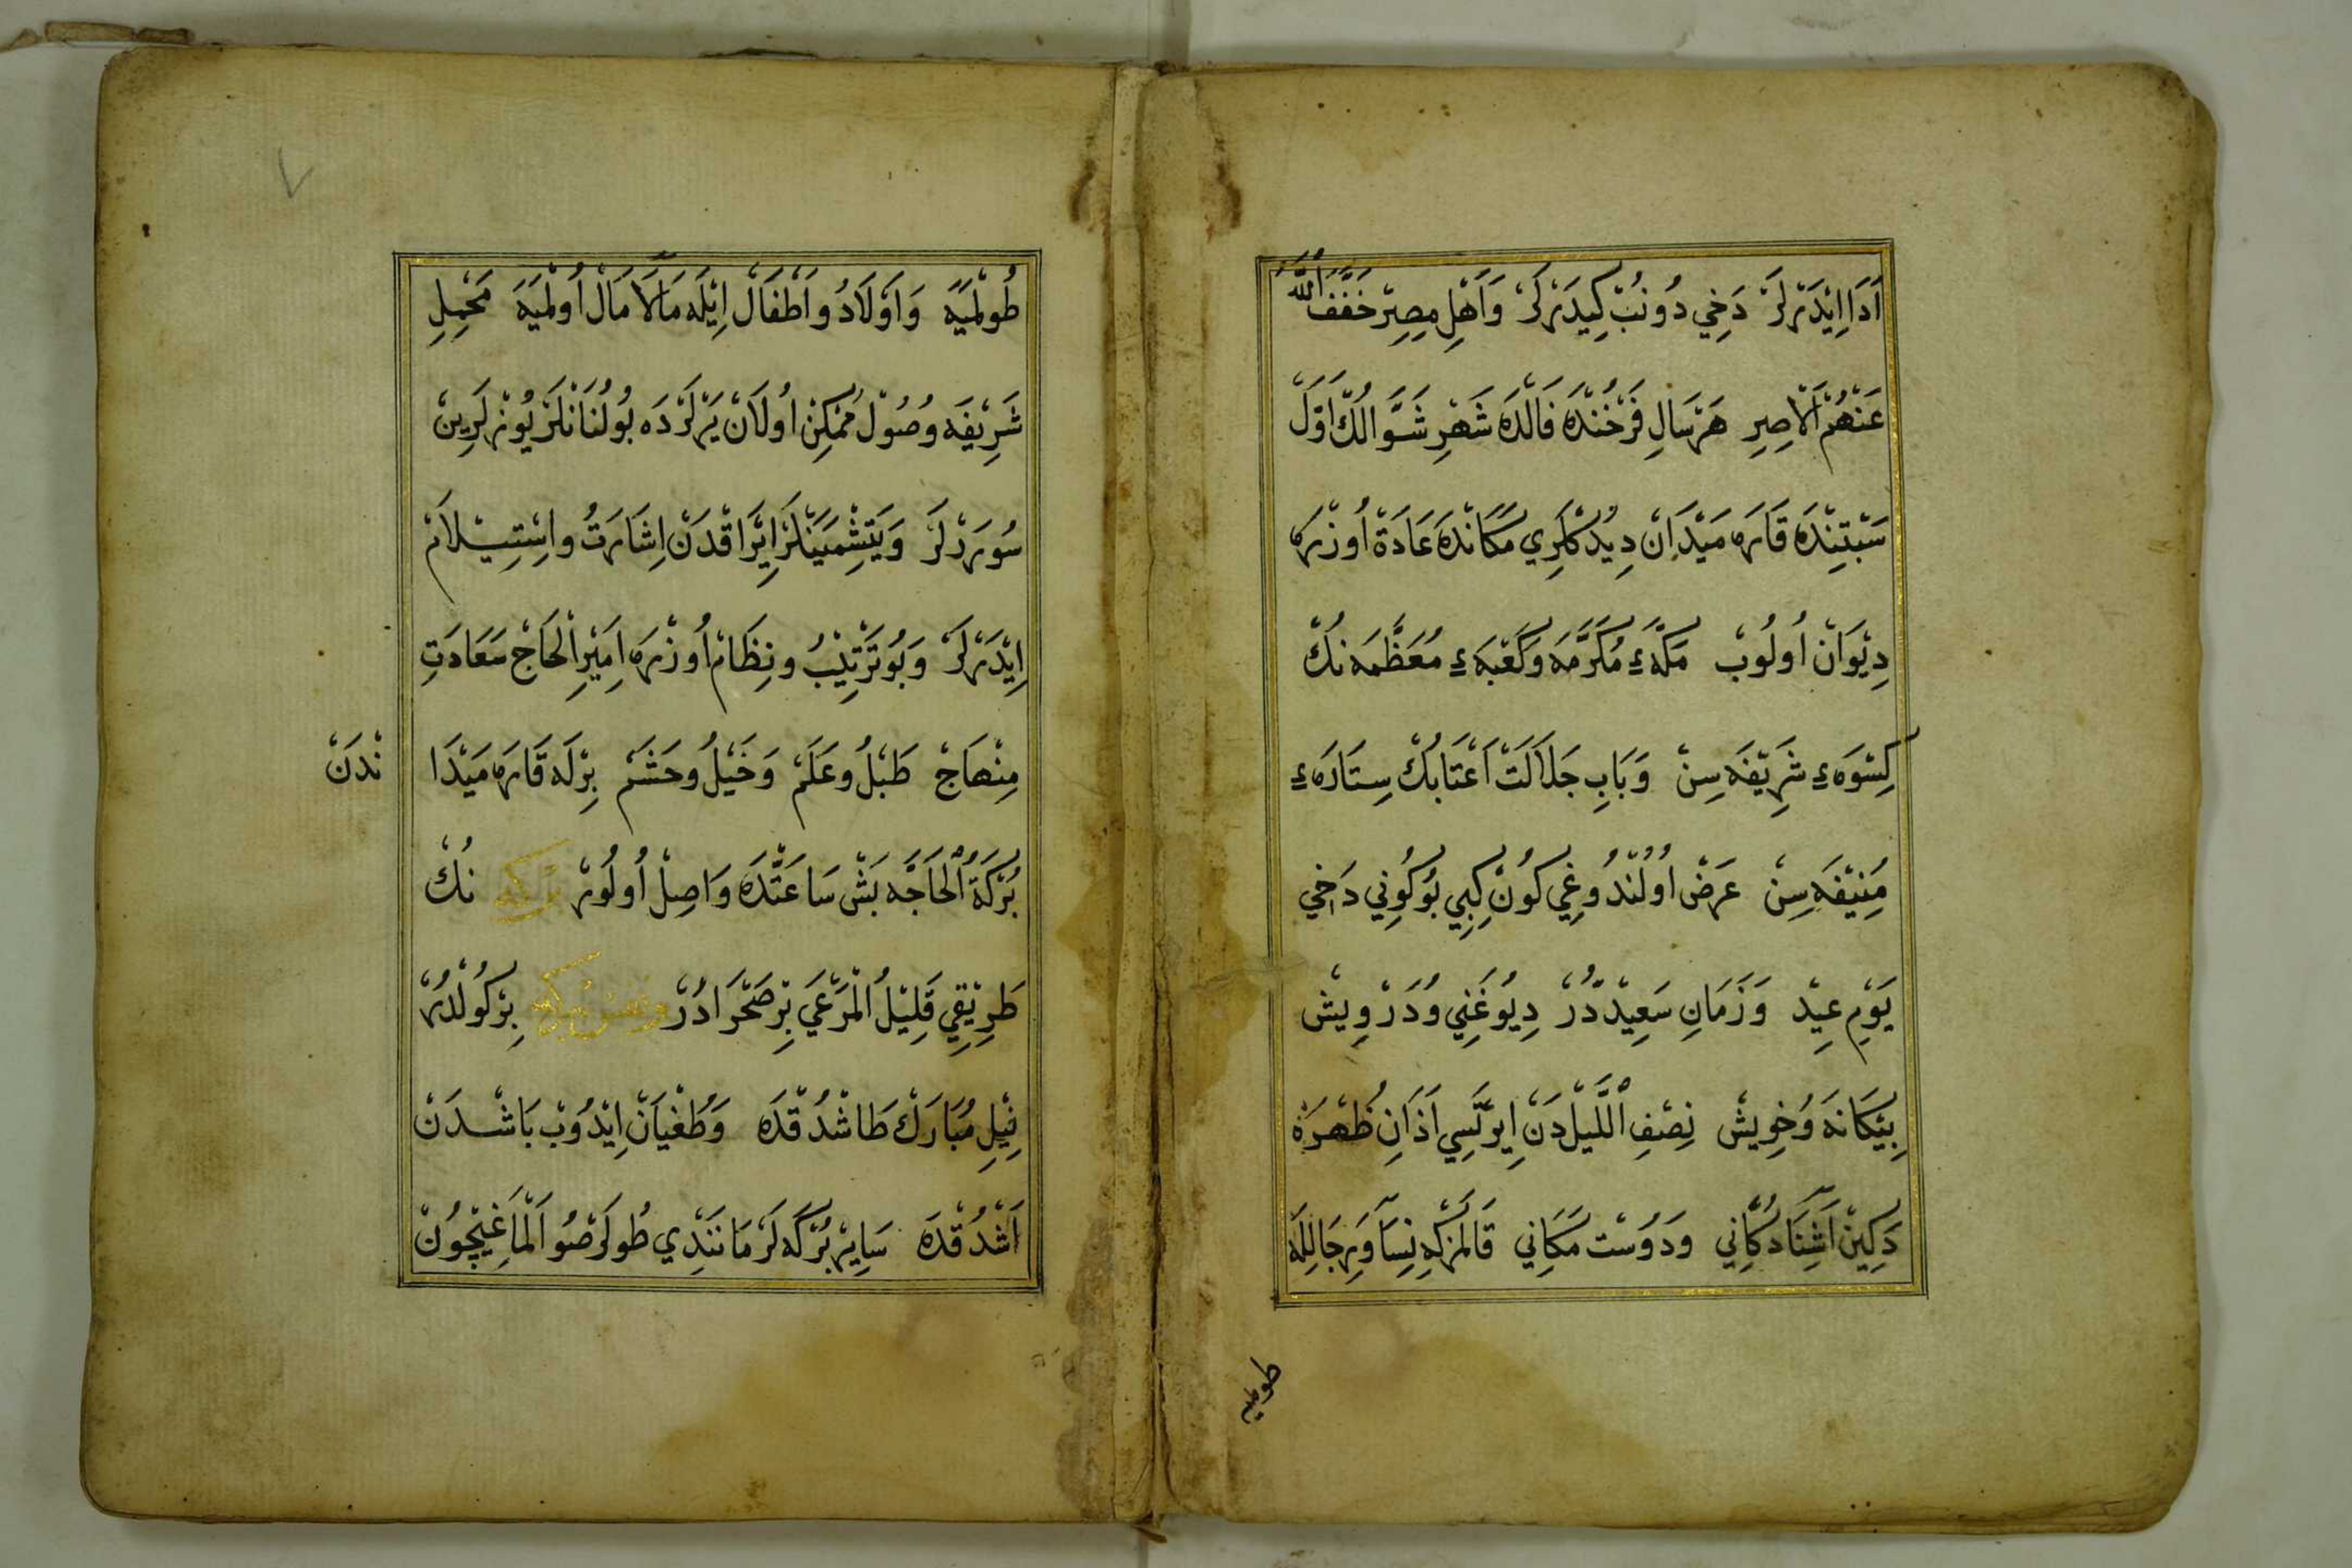 اَدَا اِيْدَرْلَرْ دَخِي دُونُبْ كِيدَرْلَرْ وَاَهْلِ مِصِرْ خَفَّفَ اللّٰهُ
عَنْهُمُ الْاِصِرِ هَرْسَالِ فَرْخُنْدَه فَالْدَه شَهْرِ شَوَّالُكْ اَوَّلْ
سَبْتِنْدَه قَارَه مَيْدَانْ دِيْدُكْلَرِي مَكَانْدَه عَادَةْ اُوزْرَه
دِيْوَانْ اُولُوبْ مَكَّهٔ مُكَرَّمَه وَكَعْبَهٔ مُعَظَّمَه نُكْ
كِسْوَهٔ شَرِيْفَه سِنْ وَبَابِ جَلَالَتْ اَعْتَابُكْ سِتَارَهٔ
مُنِيْفَه سِنْ عَرَضْ اُولُنْدُوغِي كُونْ كِبِي بُوكُونِي دَاخِي
يَوْمِ عِيْدْ وَزَمَانِ سَعِيْدْدُرْ دِيُو غَنِي وُدَرْوِيشْ
بِيْكَانَه وُخِويشْ نِصْفِ اللَّيْلْدَنْ اِيرْتَسِي اَذَانِ ظُهْرَه
دَكِينْ اٰشِنَا دُكَّانِي وَدُوسْت مَكَانِي قَالْمَزْكِه نِسَا وَرِجَالِلَه
طوليه
طُولْمَيَه وَاَوْلَادُ واَطْفَالْ اِيْلَه مَالَامَالْ اُولْمَيَه مَحْمِلِ
شَرِيْفَه وُصُولْ مُمْكِنْ اُولَانْ يَرْلَرْدَه بُولُنَانْلَرْ يُوزْلَرِينْ
سُورَرْلَرْ وَيَتِشْمَيَنْلَرْ اِيْرَاقْدَنْ اِشَارَتُ واِسْتِيْلَامْ
اِيْدَرْلَرْ وَبُو تَرْتِيْبُ ونِظَامْ اُوزْرَه اَمِيْرِ الْحَاجْ سَعَادَتِ
مِنْهَاجْ طَبْلُ وعَلَمْ وَخَيْلُ وحَشَمْ بِرْلَه قَارَه مَيْدَا نْدَنْ
بُرْكَةُ الْحَاجَّه بَشْ سَاعَتْدَه وَاصِلْ اُولُورْ بركه نُكْ
طَرِيْقِي قَلِيْلُ الْمَرْعَي بِرْ صَحْرَادُرْ بِرْكُولْدُرْ
نِيْلِ مُبَارَكْ طَاشْدُقْدَه وَطُغْيَانْ اِيْدُوبْ بَاشْدَنْ
اَشْدُقْدَه سَايِرْ بُرْكَه لَرْ مَانَنْدِي طُولَرْ صُو اَلْمَاغِيْچُونْ